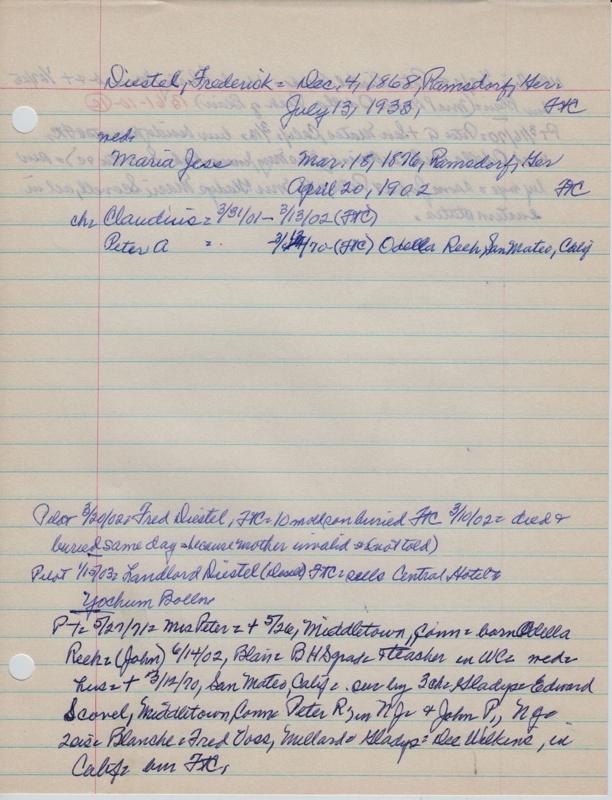 Diestel, Frederick = Dec. 4, 1868, Ramsdorf, Ger.
July 13, 1933, FtC
wed:
Maria Jess Mar. 18, 1876, Ramsdorf, Ger
April 20, 1902 FtC
chr Claudius = 3/31/01 - 3/13/02 (FtC)
Peter A = . 3/12/70 - (FtC) Odella Reeh, San Mateo, Calif
Pilot 3/20/02 = Fred Diestel, FtC = 10 mold son buried FtC 3/10/02 = died &
buried same day = because mother invalid & not told)
Pilot 1/15/03 = Landlord Diestel FtC = sells Central Hotel to
Yochum Bollne
P-T = 5/27/71 = Mrs Peter = + 5/26, Middletown, Conn = born Odella
Reeh = (John) 6/14/02, Blair = BHS grad = teacher in WC = wed =
hus = + 3/12/70, San Mateo, Calif = sur by 3 ch = Gladys = Edward
Scovel, Middletown, Conn Peter R, in NJ = & John P,, NJ =
2 sis = Blanche = Fred Voss, Millard = Gladys = Dee Wilkins, in
Calif = bur FtC,